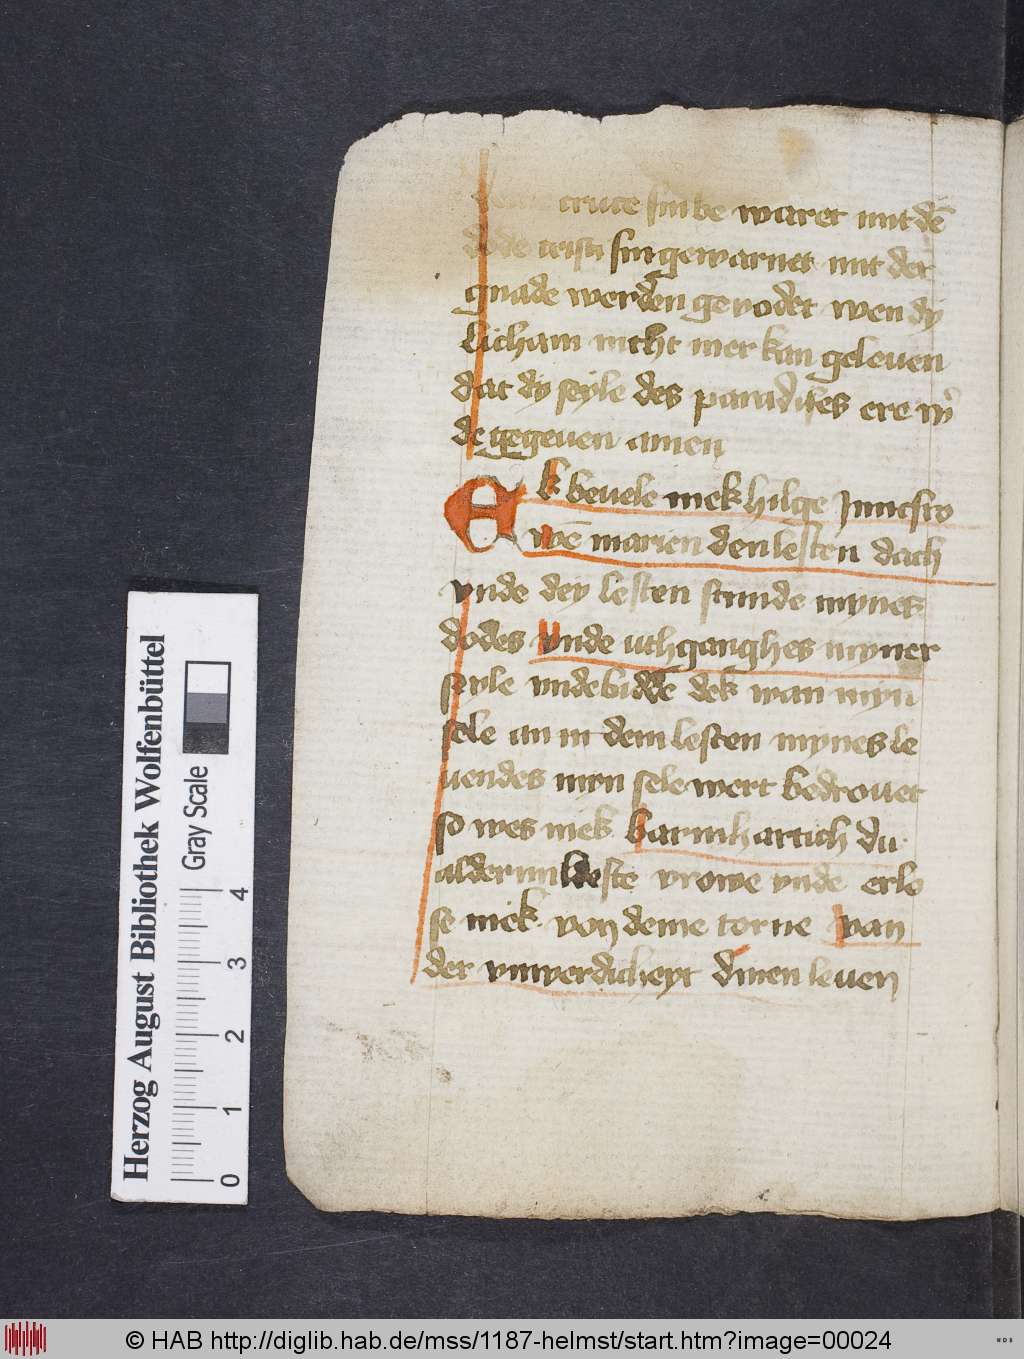 cruce sin be waret mit dē
dode cristi sin gewarnet mit der
gnade werden gevodet wen dy
licham nicht mer kan geleven
dat dy seyle des paradises ere w̕
de gegeven amen
Ek bevele mek hilge Juncfro
wē marien den lesten dach
vnde dey lesten stunde mynes
dodes vnde uthganghes myner
seyle vnde bidde dek wan myn
sele an in dem lesten mynes le
uendes myn sele wert bedrovet
so wes mek barmhartich du
aldermildeste vrowe vnde erlo
se mek von deme torne van
der vnwerdicheyt dinen leven
Herzog August Bibliothek Wolfenbüttel
Gray Scale
0 1 2 3 4
© HAB http://diglib.hab.de/mss/1187-helmst/start.htm?image=00024
WDB